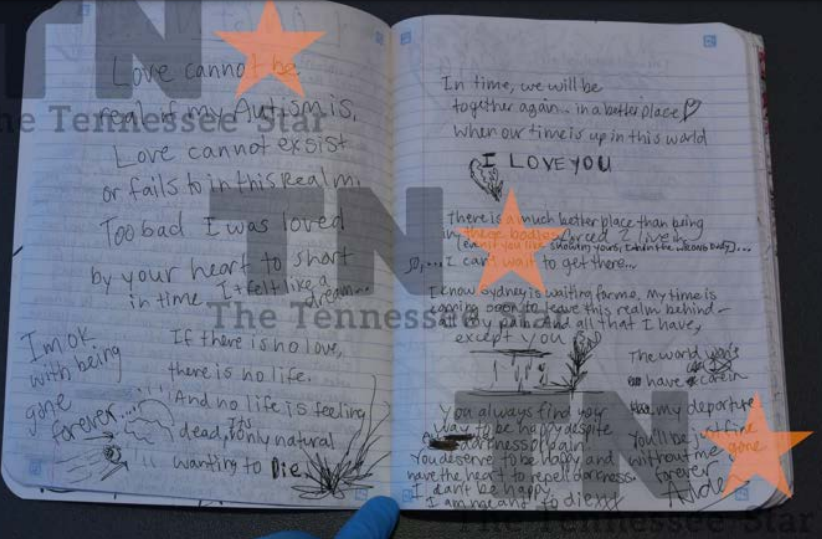 Love cannot be
real if my Autism is,
Love cannot exsist
or fails to in this Realm.
Too bad I was loved
by your heart to short
in time. It felt like a
dream...
If there is no love,
there is no life.
And no life is feeling
dead, its only natural
wanting to Die.
I'm ok
with being
gone
forever...
In time, we will be
together again... in a better place
when our time is up in this world
I LOVE YOU
There is a much better place than being
in these bodies forced 2 live in
(even if you like showing yours,
so,... I can't wait to get there...
I know Sydney is waiting for me. My time is
coming soon to leave this realm behind -
all my pain and all that I have,
except you
You always find your
way to be happy despite
darkness or pain.
You deserve to be happy and
have the heart to repel darkness.
I can't be happy
I am meant to die
The world
have care in
my departure
You'll be just fine
without me gone
forever
TN
The Tennessee Star
TN
The Tennessee Star
TN
The Tennessee Star